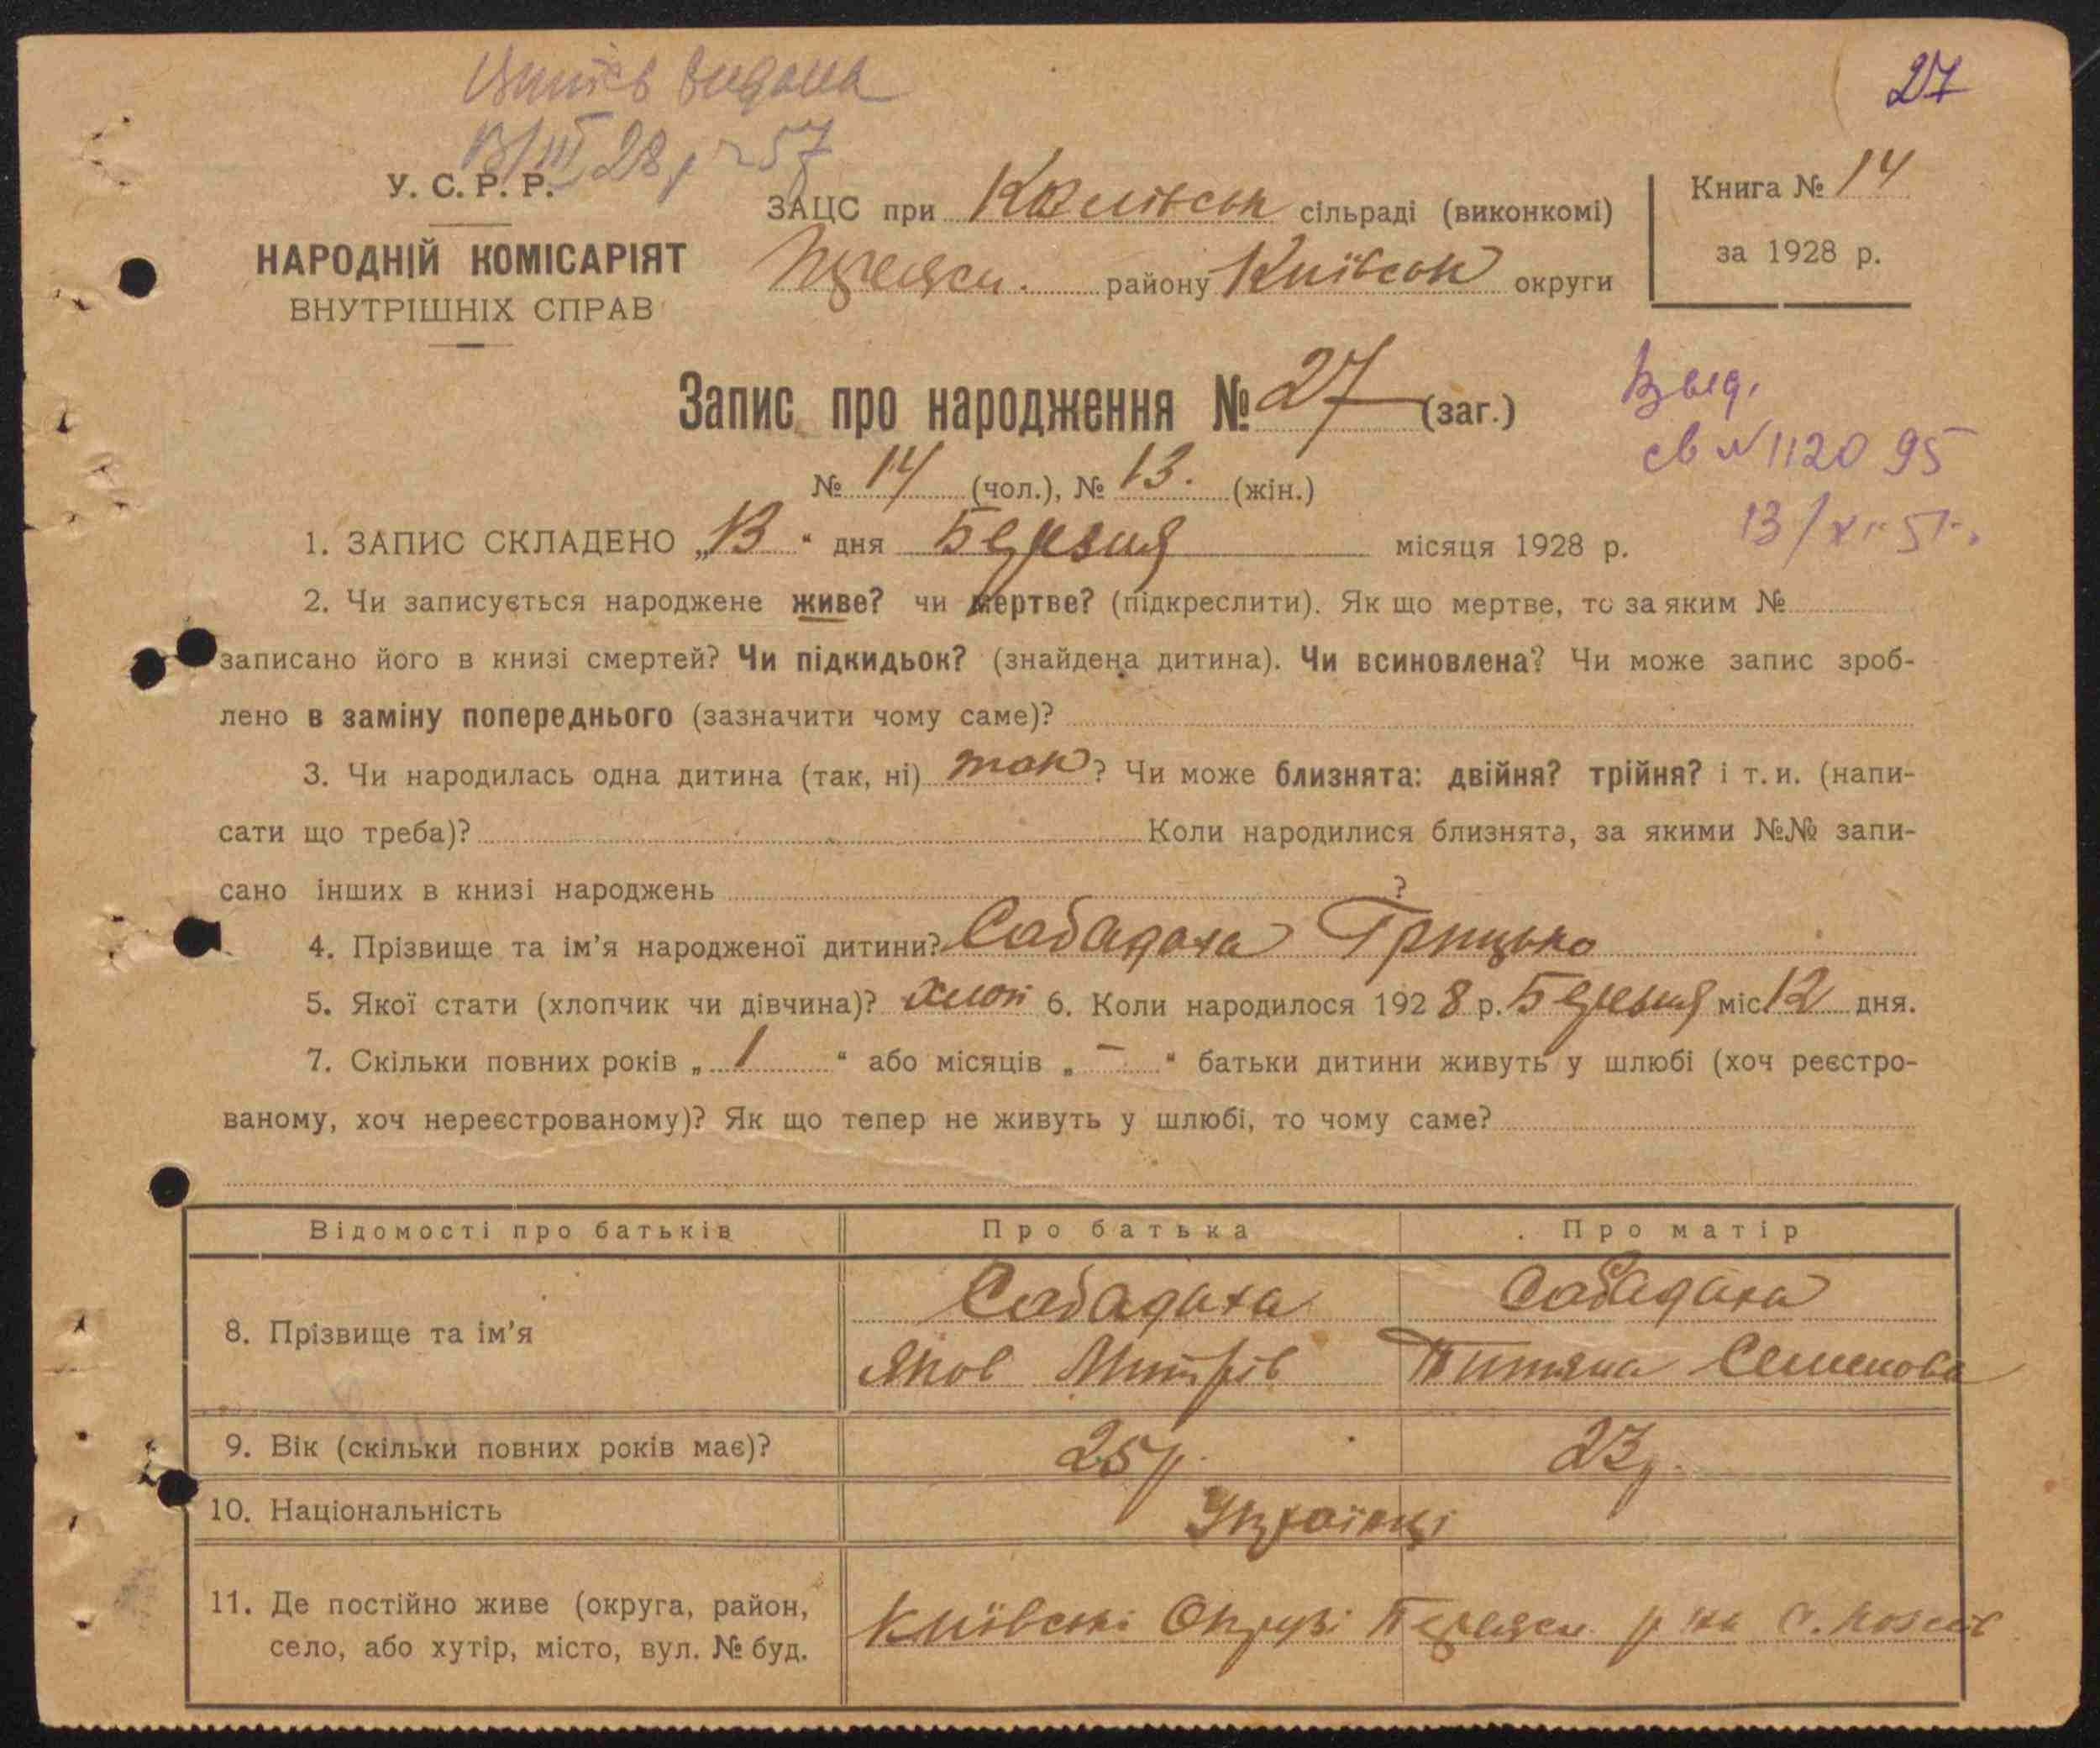 27
Витяг видана
13/III 28 р № 57
У. С. Р. Р.
НАРОДНІЙ КОМІСАРІЯТ
ВНУТРІШНІХ СПРАВ
ЗАЦС при сільраді (виконкомі)
району Київськ округи
Книга № 14
за 1928 р.
Запис про народження № 27 (заг.)
Выд.
св № 112095
13/XI-51г.
№ 14 (чол.), № 13. (жін.)
1. ЗАПИС СКЛАДЕНО „13“ дня Березня місяця 1928 р.
2. Чи записується народжене живе? чи мертве? (підкреслити). Як що мертве, то за яким №
записано його в книзі смертей? Чи підкидьок? (знайдена дитина). Чи всиновлена? Чи може запис зроб-
лено в заміну попереднього (зазначити чому саме)?
3. Чи народилась одна дитина (так, ні) так? Чи може близнята: двійня? трійня? і т. и. (напи-
сати що треба)? Коли народилися близнята, за якими №№ запи-
сано інших в книзі народжень ?
4. Прізвище та ім’я народженої дитини? Сабадаха Грицько
5. Якої стати (хлопчик чи дівчина)? хлоп 6. Коли народилося 1928 р. Березня міс. 12 дня.
7. Скільки повних років „ 1 “ або місяців „ – “ батьки дитини живуть у шлюбі (хоч реєстро-
ваному, хоч нереєстрованому)? Як що тепер не живуть у шлюбі, то чому саме?
Відомості про батьків Про батька Про матір
8. Прізвище та ім’я
Сабадаха Сабадаха
Яков Митрів Титяна Семенова
9. Вік (скільки повних років має)? 25 р. 23 р.
10. Національність Українці
11. Де постійно живе (округа, район,
село, або хутір, місто, вул. № буд.
Київської Округи Переясл. р на с.